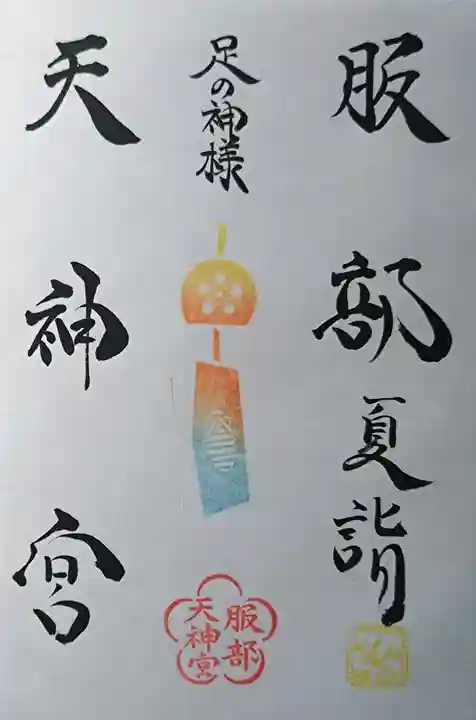 服部
夏詣
足の神様
天神宮
服部
天神宮